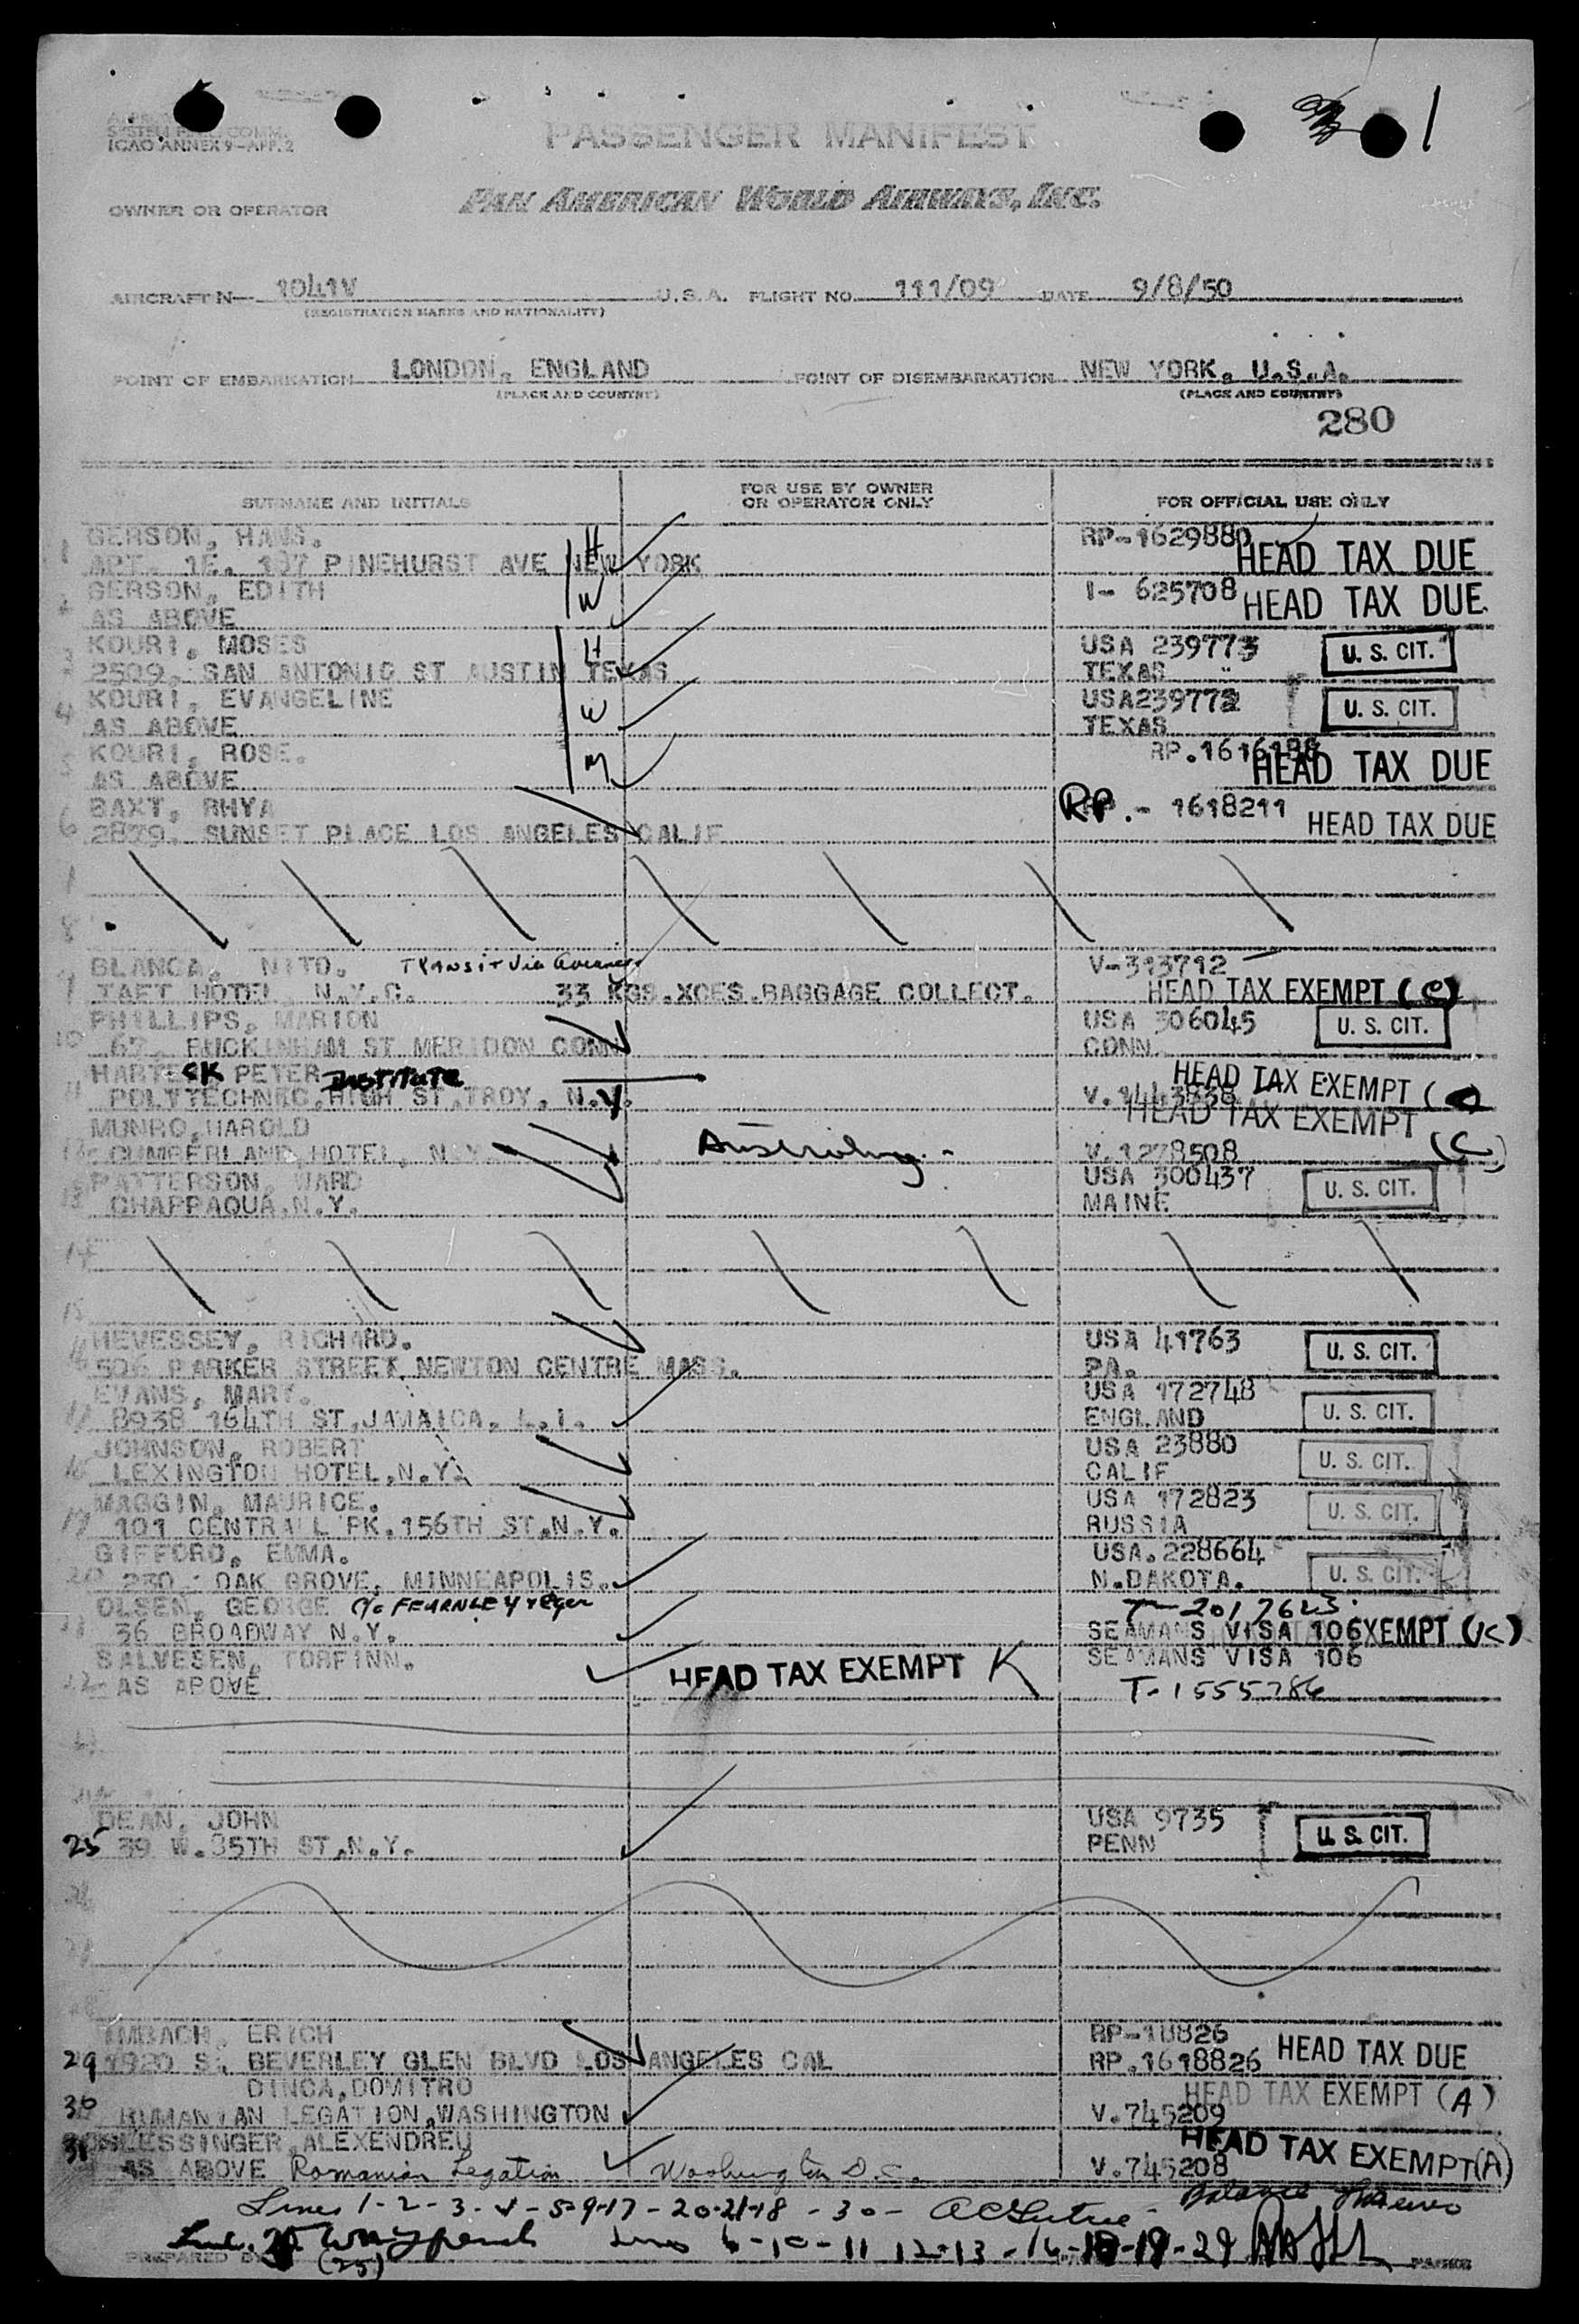 1
SYSTEM COMM.
ICAO ANNEX 9-APP. 2
PASSENGER MANIFEST
OWNER OR OPERATOR PAN AMERICAN WORLD AIRWAYS, INC.
AIRCRAFT N 1041V U.S.A. FLIGHT NO. 111/09 DATE 9/8/50
(REGISTRATION MARKS AND NATIONALITY)
POINT OF EMBARKATION LONDON, ENGLAND POINT OF DISEMBARKATION NEW YORK. U.S.A.
(PLACE AND COUNTRY) (PLACE AND COUNTRY)
280
SURNAME AND INITIALS FOR USE BY OWNER OR OPERATOR ONLY FOR OFFICIAL USE ONLY
1 GERSON, HANS. H RP-1629880 HEAD TAX DUE
APT. 1E. 197 PINEHURST AVE NEW YORK
2 GERSON, EDITH W I- 625708 HEAD TAX DUE
AS ABOVE
3 KOURI, MOSES H USA 239773 U. S. CIT.
2509. SAN ANTONIO ST AUSTIN TEXAS TEXAS
4 KOURI, EVANGELINE W USA239772 U. S. CIT.
AS ABOVE TEXAS
5 KOURI, ROSE. M RP.1616188 HEAD TAX DUE
AS ABOVE
6 BAXT, RHYA RP.- 1618211 HEAD TAX DUE
2879. SUNSET PLACE LOS ANGELES CALIF
7
8
9 BLANCA, NITO. Transit via V-313712
TAFT HOTEL N.Y.C. 33 KGS.XCES.BAGGAGE COLLECT. HEAD TAX EXEMPT (C)
10 PHILLIPS, MARION USA 306045 U. S. CIT.
67, BUCKINHAM ST MERIDON CONN CONN.
11 HARTE CK PETER INSTITUTE HEAD TAX EXEMPT (C)
POLYTECHNIC, HIGH ST, TROY, N.Y. V.1443538
12 MUNRO, HAROLD HEAD TAX EXEMPT (C)
CUMBERLAND, HOTEL, N.Y. V.1278508
13 PATTERSON, WARD USA 300437 U. S. CIT.
CHAPPAQUA, N.Y. MAINE
14
15
16 HEVESSEY, RICHARD. USA 41763 U. S. CIT.
506 PARKER STREET, NEWTON CENTRE MASS. PA.
17 EVANS, MARY. USA 172748 U. S. CIT.
8938 164TH ST, JAMAICA, L.I. ENGLAND
18 JOHNSON, ROBERT USA 23880 U. S. CIT.
LEXINGTON HOTEL, N.Y. CALIF
19 MAGGIN, MAURICE. USA 172823 U. S. CIT.
101 CENTRALL PK. 156TH ST.N.Y. RUSSIA
20 GIFFORD, EMMA. USA.228664 U. S. CIT.
230. OAK GROVE, MINNEAPOLIS. N.DAKOTA.
21 OLSEN, GEORGE c/o FEARNLEY & Eger T-2017623
36 BROADWAY N.Y. SEAMANS VISA 106 EXEMPT (K)
22 SALVESEN, TORFINN. HEAD TAX EXEMPT K SEAMANS VISA 106
AS ABOVE T-1555786
DEAN, JOHN USA 9735 U. S. CIT.
25 39 W.35TH ST,N.Y. PENN
IMBACH, ERICH RP-18826
29 1920 S. BEVERLEY GLEN BLVD LOS ANGELES CAL RP.1618826 HEAD TAX DUE
DINCA, DOMITRO HEAD TAX EXEMPT (A)
30 RUMANIAN LEGATION, WASHINGTON V.745209
31 SLESSINGER, ALEXENDREU HEAD TAX EXEMPT (A)
AS ABOVE Romanian Legation Washington D.C. V.745208
Lines 1-2-3-4-5-9-17-20-21-18-30-
(25) Lines 6-10-11 12-13-16-18-19-29
PREPARED BY